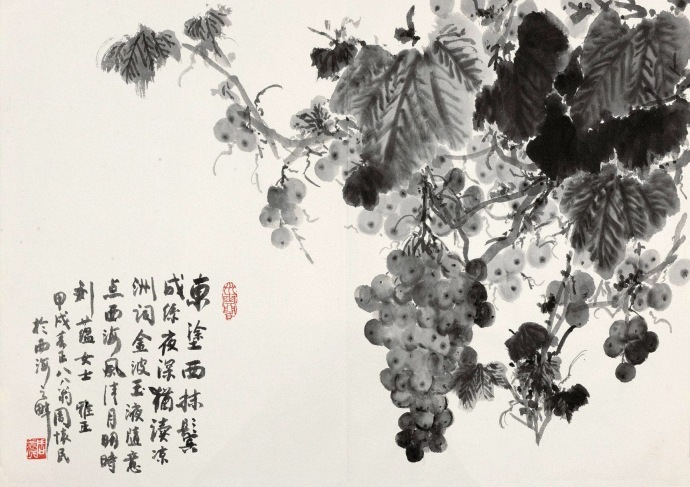 東塗西抹鬓
成絲夜深猶讀凉
洲词金波玉液隨意
点西海風清月明時
蕴女士雅正
甲戌春正八八翁周懷民
於西海之畔